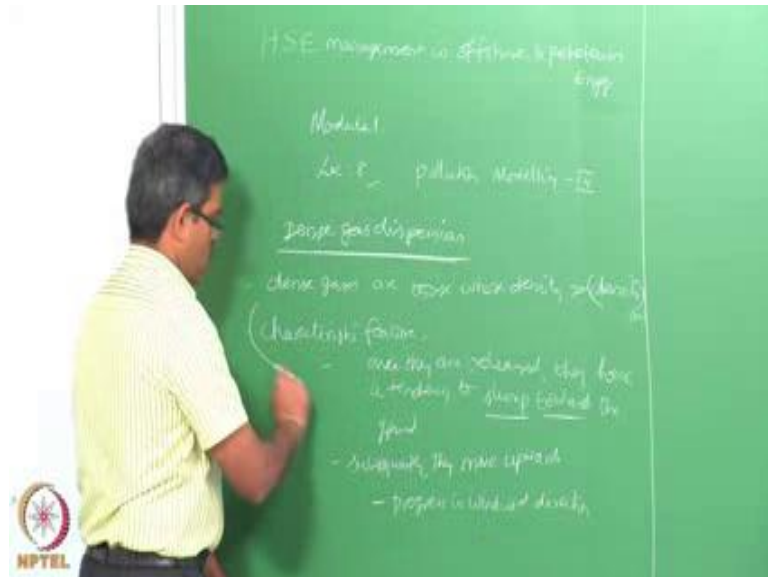 HSE management in offshore & petroleum
Engg
Module 1
Lec 8 pollution modelling - IV
Dense gas dispersion
- dense gases are those whose density > (density)
Characteristic feature.
- once they are released, they have
a tendency to slump toward the
ground
- subsequently they move upward
- progress in wind ward direction
NPTEL